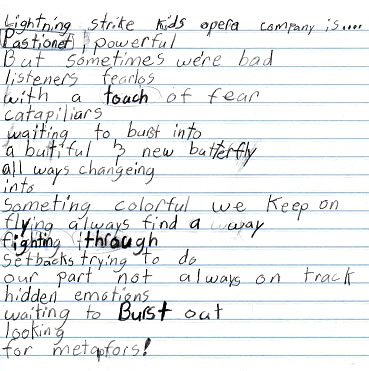 Lightning strike kids opera company is....
Pastionet powerful
But sometimes we're bad
listeners fearlos
with a touch of fear
catapiliars
waiting to bust into
a butiful new butterfly
all ways changeing
into
someting colorful we keep on
flying always find a way
fighting through
setbacks trying to do
our part not always on track
hidden emotions
waiting to Burst out
looking
for metapfors!